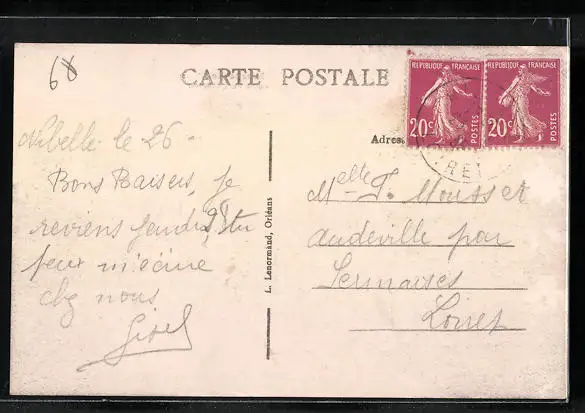 68
CARTE POSTALE
REPUBLIQUE FRANÇAISE
20c
POSTES
REPUBLIQUE FRANÇAISE
20c
POSTES
RET
Nibelle le 26
Bons Baisers, je
reviens jeudi 28 tu
peux m'écrire
chez nous
Gisel
L. Lenormand, Orléans
Adres
Melle J. Mousset
Audeville par
Sermaises
Loiret